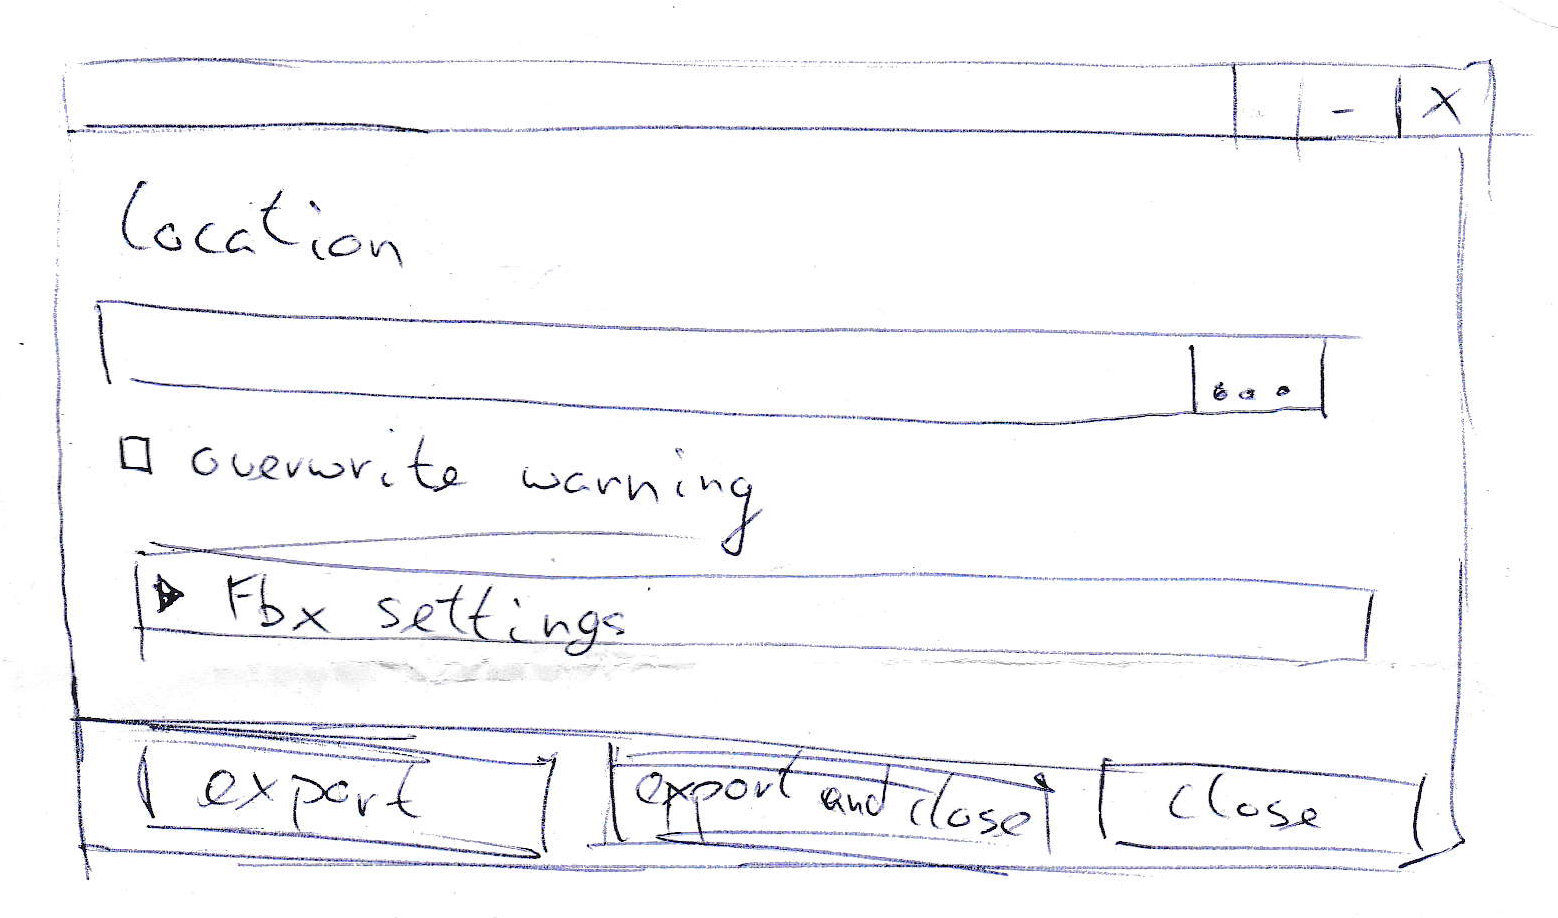 - X
location
...
overwrite warning
Fbx settings
export
export and close
close